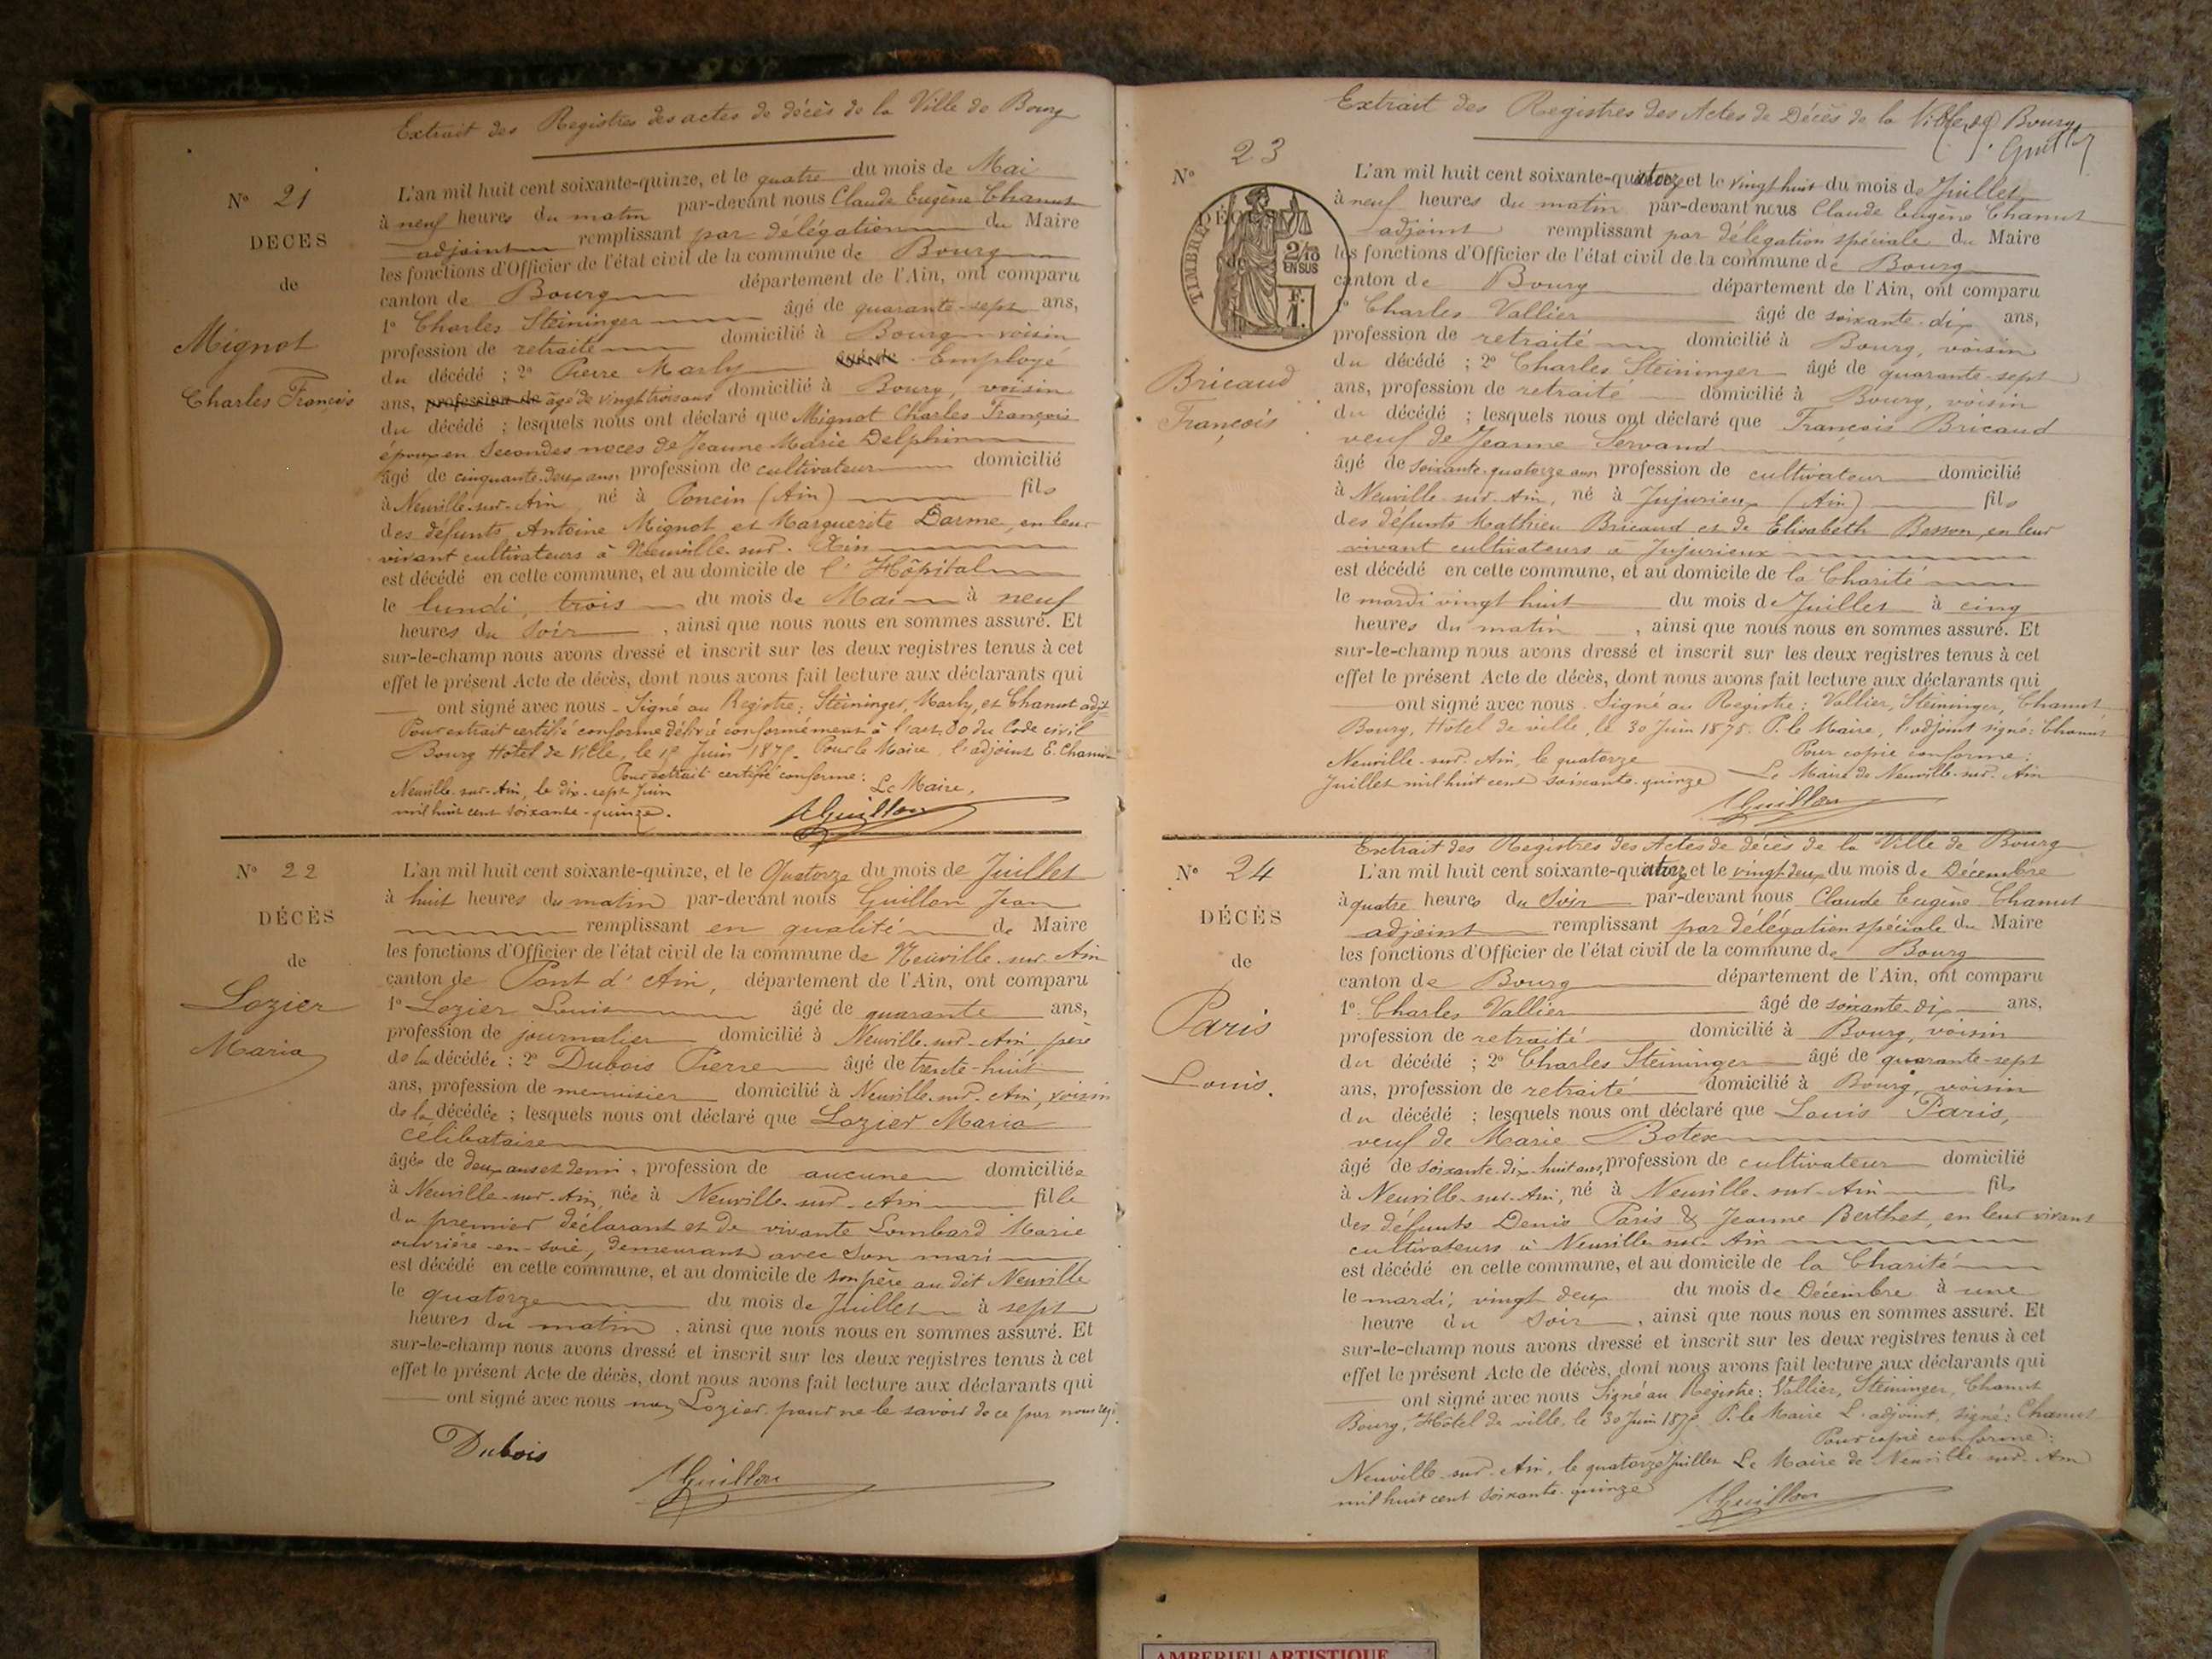 Extrait des Registres des actes de décès de la Ville de Bourg
N° 21
DECES
de
Mignot
Charles François
L'an mil huit cent soixante-quinze, et le quatre du mois de Mai
à neuf heures du matin par-devant nous Claude Eugène Chanut
adjoint remplissant par délégation du Maire
les fonctions d'Officier de l'état civil de la commune de Bourg
canton de Bourg département de l'Ain, ont comparu
1° Charles Steininger âgé de quarante-sept ans,
profession de retraité domicilié à Bourg voisin
du décédé ; 2° Pierre Marly âgé de Employé
ans, profession de âgé de vingt trois ans domicilié à Bourg, voisin
du décédé ; lesquels nous ont déclaré que Mignot Charles François
époux en Secondes noces de Jeanne Marie Delphin
âgé de cinquante-deux ans, profession de cultivateur domicilié
à Neuville-sur-Ain né à Poncin (Ain) fils
des défunts Antoine Mignot et Marguerite Darme, en leur
vivant cultivateurs à Neuville-sur-Ain
est décédé en cette commune, et au domicile de l'Hôpital
le lundi, trois du mois de Mai à neuf
heures du soir, ainsi que nous nous en sommes assuré. Et
sur-le-champ nous avons dressé et inscrit sur les deux registres tenus à cet
effet le présent Acte de décès, dont nous avons fait lecture aux déclarants qui
ont signé avec nous - Signé au Registre: Steininger, Marly, et Chanut adjt
Pour extrait certifié conforme délivré conformément à l'art. 80 du Code civil
Bourg Hôtel de Ville, le Juin 1875. Pour le Maire, l'adjoint E. Chanut
Pour extrait certifié conforme:
Neuville-sur-Ain, le dix-sept Juin Le Maire,
mil huit cent soixante-quinze. Guillon
N° 22
DÉCÈS
de
Lozier
Maria
L'an mil huit cent soixante-quinze, et le Quatorze du mois de Juillet
à huit heures du matin par-devant nous Guillon Jean
remplissant en qualité de Maire
les fonctions d'Officier de l'état civil de la commune de Neuville-sur-Ain
canton de Pont d'Ain, département de l'Ain, ont comparu
1° Lozier Louis âgé de quarante ans,
profession de journalier domicilié à Neuville-sur-Ain père
de la décédée : 2° Dubois Pierre âgé de trente-huit
ans, profession de menuisier domicilié à Neuville-sur-Ain, voisin
de la décédée ; lesquels nous ont déclaré que Lozier Maria
célibataire
âgée de deux ans et demi, profession de aucune domiciliée
à Neuville-sur-Ain, née à Neuville-sur-Ain fille
du premier déclarant et de vivante Lombard Marie
ouvrière-en-soie, demeurant avec son mari
est décédé en cette commune, et au domicile de son père au dit Neuville
le quatorze du mois de Juillet à sept
heures du matin, ainsi que nous nous en sommes assuré. Et
sur-le-champ nous avons dressé et inscrit sur les deux registres tenus à cet
effet le présent Acte de décès, dont nous avons fait lecture aux déclarants qui
ont signé avec nous non Lozier pour ne le savoir de ce par nous
Dubois
Guillon
Extrait des Registres des Actes de Décès de la Ville de Bourg
N° 23
TIMBRE
2/10
EN SUS
F.
1.
Bricaud
François
L'an mil huit cent soixante-quatorze et le vingt huit du mois de Juillet
à neuf heures du matin par-devant nous Claude Eugène Chanut
adjoint remplissant par délégation spéciale du Maire
les fonctions d'Officier de l'état civil de la commune de Bourg
canton de Bourg département de l'Ain, ont comparu
1° Charles Vallier âgé de soixante-dix ans,
profession de retraité domicilié à Bourg, voisin
du décédé ; 2° Charles Steininger âgé de quarante-sept
ans, profession de retraité domicilié à Bourg, voisin
du décédé ; lesquels nous ont déclaré que François Bricaud
veuf de Jeanne Servand
âgé de soixante-quatorze ans profession de cultivateur domicilié
à Neuville-sur-Ain, né à Jujurieux (Ain) fils
des défunts Mathieu Bricaud et de Elisabeth Besson, en leur
vivant cultivateurs à Jujurieux
est décédé en cette commune, et au domicile de la Charité
le mardi vingt huit du mois de Juillet à cinq
heures du matin, ainsi que nous nous en sommes assuré. Et
sur-le-champ nous avons dressé et inscrit sur les deux registres tenus à cet
effet le présent Acte de décès, dont nous avons fait lecture aux déclarants qui
ont signé avec nous. Signé au Registre: Vallier, Steininger, Chanut
Bourg, Hôtel de ville, le 30 Juin 1875. P. le Maire, l'adjoint signé: Chanut
Pour copie conforme:
Neuville-sur-Ain, le quatorze
Juillet mil huit cent soixante-quinze Le Maire de Neuville-sur-Ain
Guillon
Extrait des Registres des Actes de décès de la Ville de Bourg
N° 24
DÉCÈS
de
Paris
Louis.
L'an mil huit cent soixante-quatorze et le vingt deux du mois de Décembre
à quatre heures du Soir par-devant nous Claude Eugène Chanut
adjoint remplissant par délégation spéciale du Maire
les fonctions d'Officier de l'état civil de la commune de Bourg
canton de Bourg département de l'Ain, ont comparu
1° Charles Vallier âgé de soixante-dix ans,
profession de retraité domicilié à Bourg, voisin
du décédé ; 2° Charles Steininger âgé de quarante-sept
ans, profession de retraité domicilié à Bourg, voisin
du décédé ; lesquels nous ont déclaré que Louis Paris,
veuf de Marie Botex
âgé de soixante-dix-huit ans, profession de cultivateur domicilié
à Neuville-sur-Ain, né à Neuville-sur-Ain fils
des défunts Denis Paris & Jeanne Berthet, en leur vivant
cultivateurs à Neuville-sur-Ain
est décédé en cette commune, et au domicile de la Charité
le mardi, vingt deux du mois de Décembre à une
heure du Soir, ainsi que nous nous en sommes assuré. Et
sur-le-champ nous avons dressé et inscrit sur les deux registres tenus à cet
effet le présent Acte de décès, dont nous avons fait lecture aux déclarants qui
ont signé avec nous Signé au Registre: Vallier, Steininger, Chanut
Bourg, Hôtel de ville, le 30 Juin 1875 P. le Maire L'adjoint, signé: Chanut
Pour copie conforme:
Neuville-sur-Ain, le quatorze Juillet Le Maire de Neuville-sur-Ain
mil huit cent soixante-quinze Guillon
AMBERIEU ARTISTIQUE